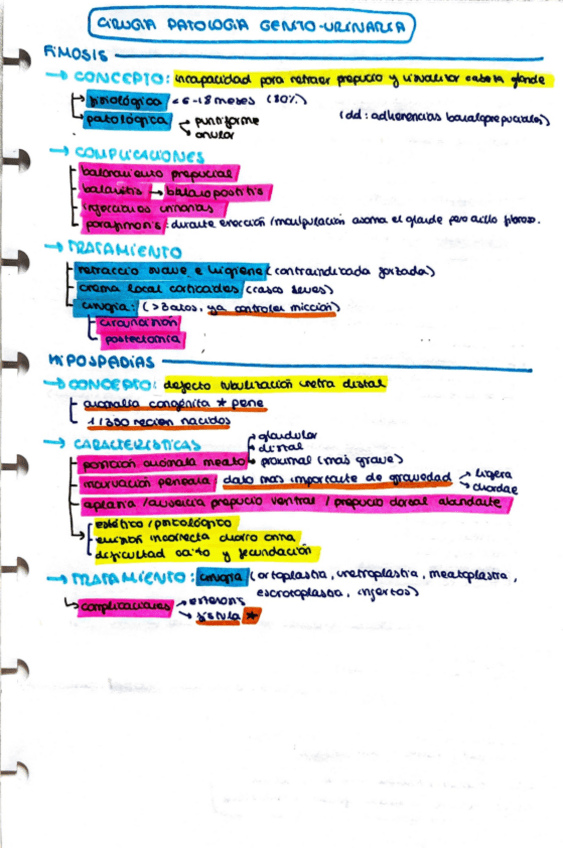 CIRUGIA PATOLOGIA GENITO-URINARIA
FIMOSIS
→ CONCEPTO: incapacidad para retraer prepucio y visualizar entera glande
fisiológica < 6-18 meses (80%)
patológica puntiforme (dd: adherencias balanoprepuciales)
anular
→ COMPLICACIONES
balonamiento prepucial
balanitis → balanopostitis
infecciones urinarias
parafimosis: durante erección/manipulación asoma el glande pero anillo fibroso.
→ TRATAMIENTO
retracción suave e higiene (contraindicada forzada)
crema local corticoides (casos leves)
cirugía: (>3 años, ya controlen micción)
circuncisión
postectomía
HIPOSPADIAS
→ CONCEPTO: defecto tubulización uretra distal
anomalía congénita * pene
1/300 recien nacidos
→ CARACTERÍSTICAS glandular
distal
posición anómala meato proximal (más grave)
incurvación peneana: dato más importante de gravedad ligera
chordae
aplasia/ausencia prepucio ventral / prepucio dorsal abundante
estético/psicológico
emisión incorrecta chorro orina
dificultad coito y fecundación
→ TRATAMIENTO: cirugía (ortoplastia, uretroplastia, meatoplastia,
escrotoplastia, injertos)
complicaciones estenosis
fístula *